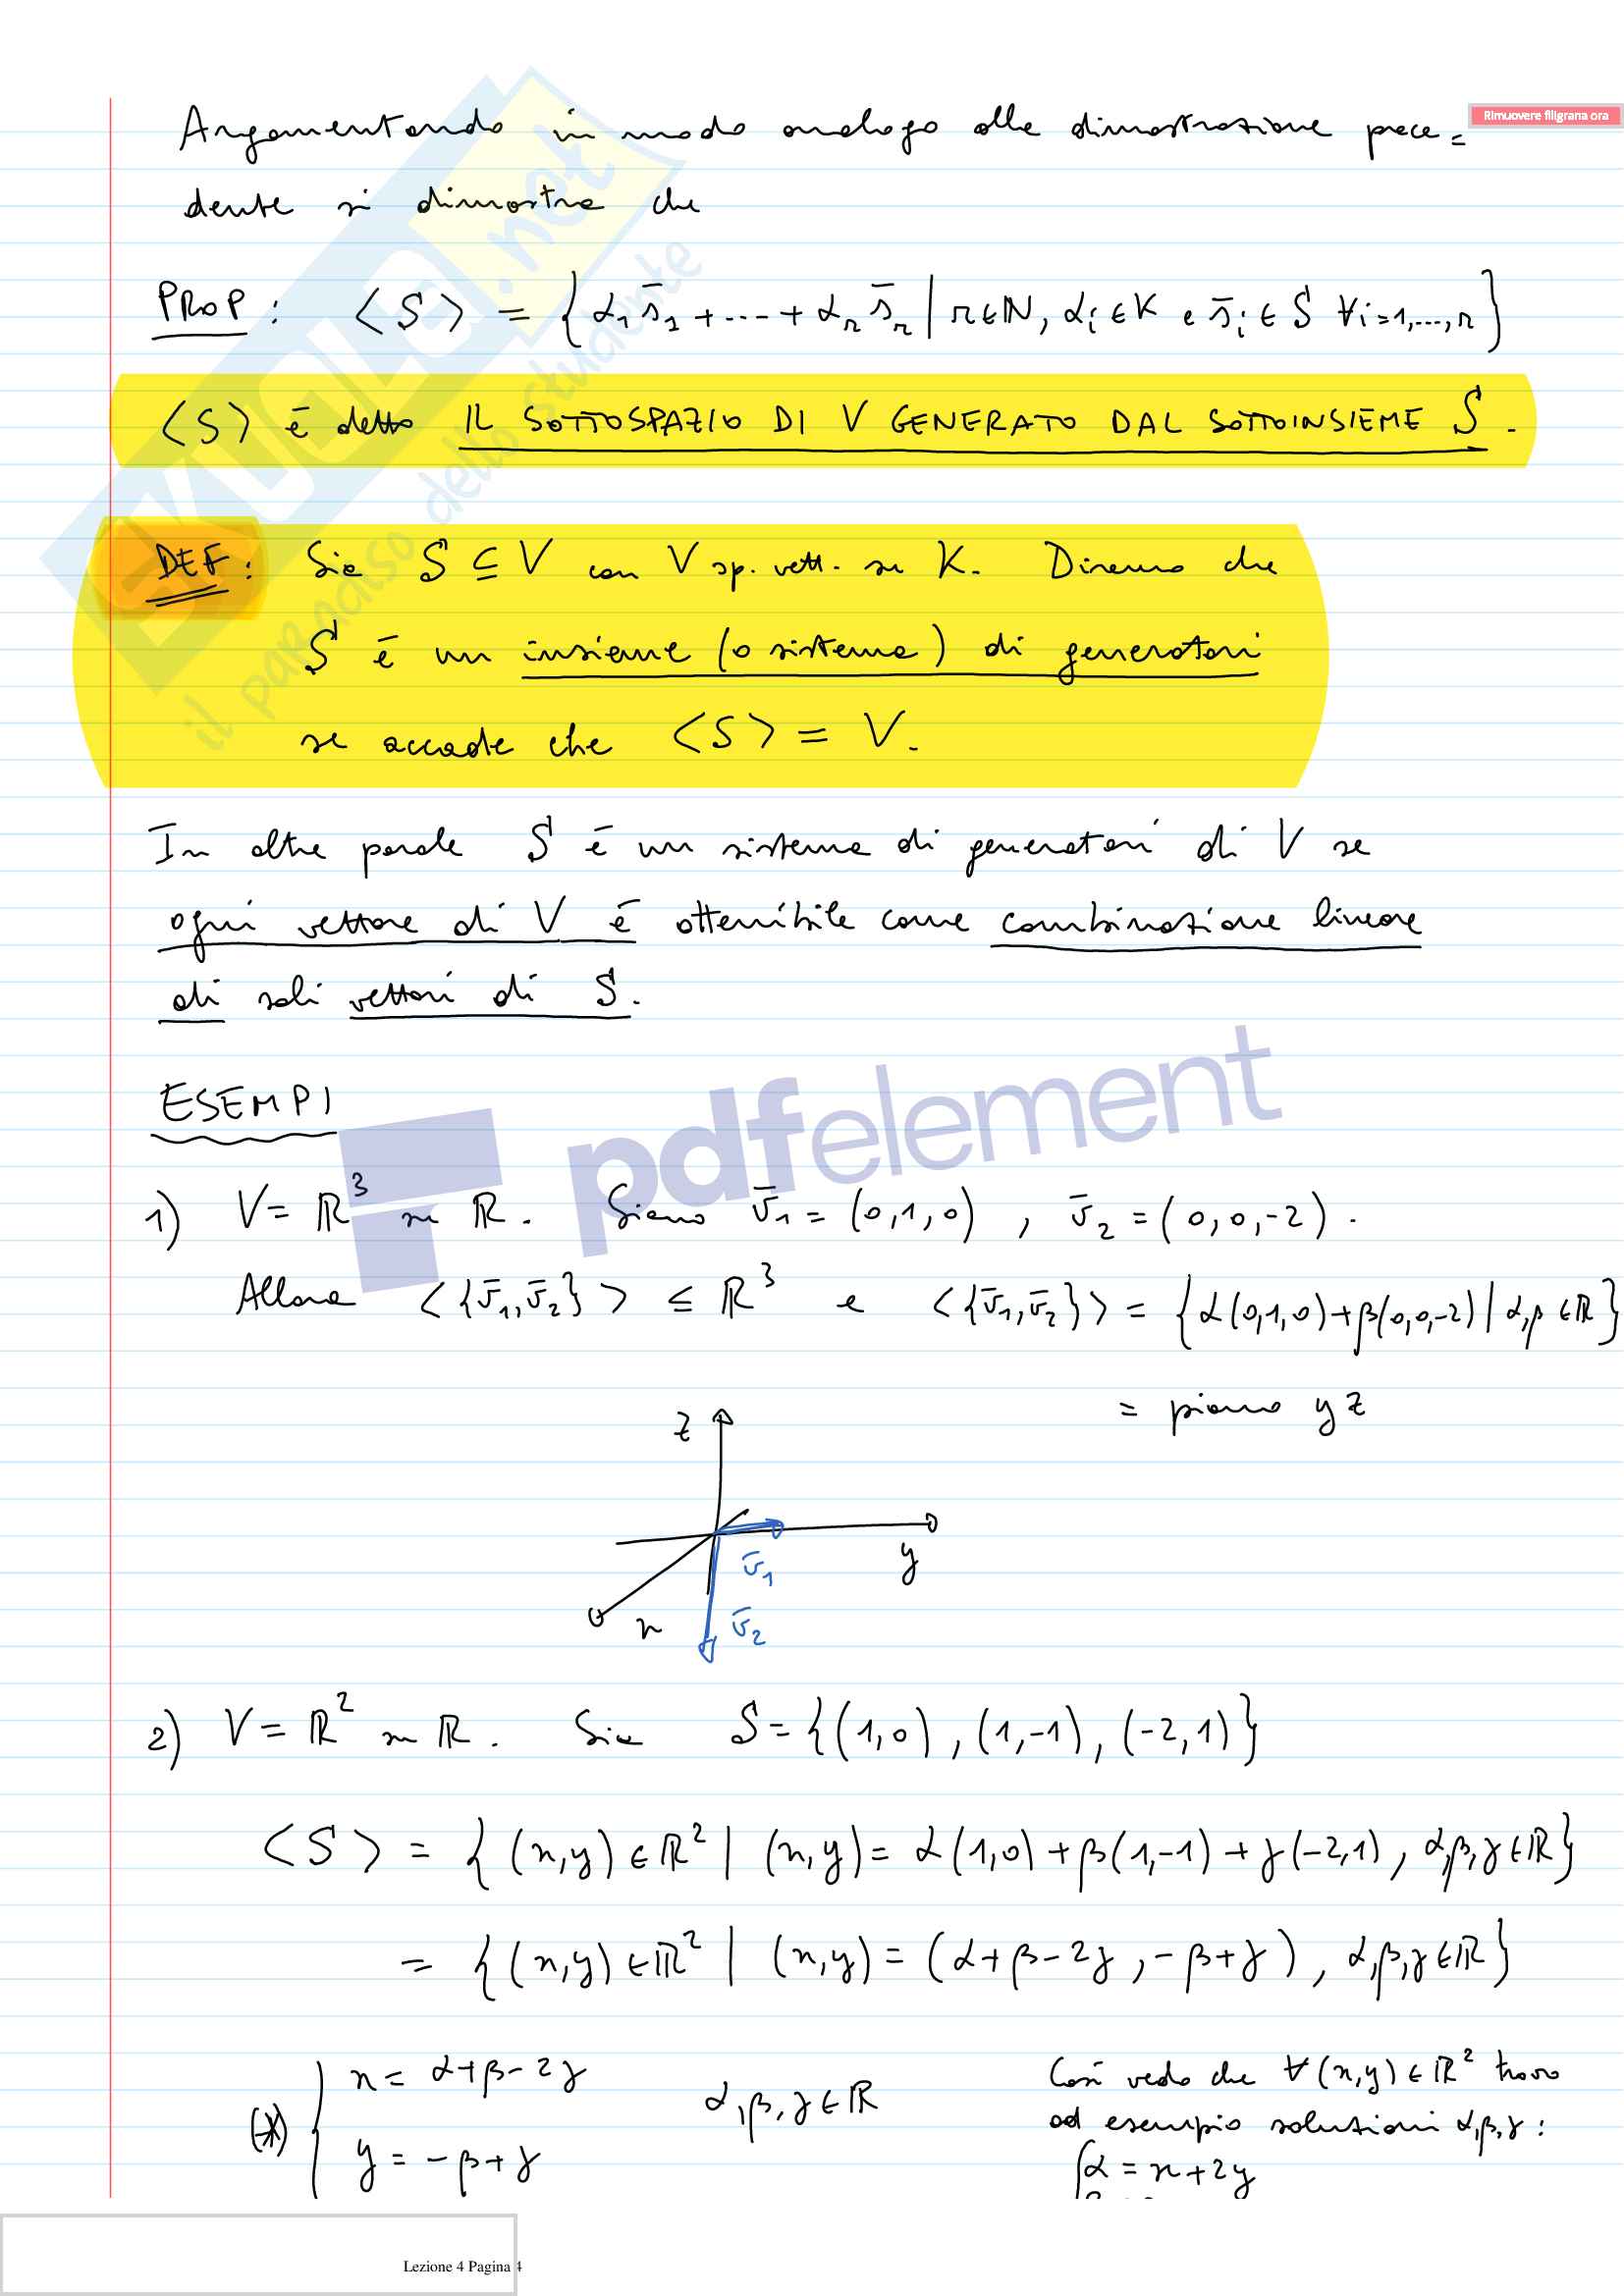 Rimuovere filigrana ora
Argomentando in modo analogo alla dimostrazione prece=
dente si dimostra che
PROP: ⟨S⟩ = { α₁s̄₁ + ... + αᵣs̄ᵣ | r∈ℕ, αᵢ∈K e s̄ᵢ∈S ∀i=1,...,r }
⟨S⟩ è detto IL SOTTOSPAZIO DI V GENERATO DAL SOTTOINSIEME S.
DEF: Sia S ⊆ V con V sp. vett. su K. Diremo che
S è un insieme (o sistema) di generatori
se accade che ⟨S⟩ = V.
In altre parole S è un sistema di generatori di V se
ogni vettore di V è ottenibile come combinazione lineare
di soli vettori di S.
ESEMPI
1) V = ℝ³ su ℝ. Siano v̄₁ = (0,1,0), v̄₂ = (0,0,-2).
Allora ⟨{v̄₁,v̄₂}⟩ ≤ ℝ³ e ⟨{v̄₁,v̄₂}⟩ = { α(0,1,0)+β(0,0,-2) | α,β∈ℝ }
= piano yz
z
y
v̄₁
x
v̄₂
2) V = ℝ² su ℝ. Sia S = {(1,0), (1,-1), (-2,1)}
⟨S⟩ = { (x,y)∈ℝ² | (x,y) = α(1,0)+β(1,-1)+γ(-2,1), α,β,γ∈ℝ }
= { (x,y)∈ℝ² | (x,y) = (α+β-2γ, -β+γ), α,β,γ∈ℝ }
(*) { x = α+β-2γ
y = -β+γ
α,β,γ∈ℝ
Così vedo che ∀(x,y)∈ℝ² trovo
ad esempio soluzioni α,β,γ:
{ α = x+2y
Lezione 4 Pagina 4
skuola.net
il paradiso dello studente
pdfelement